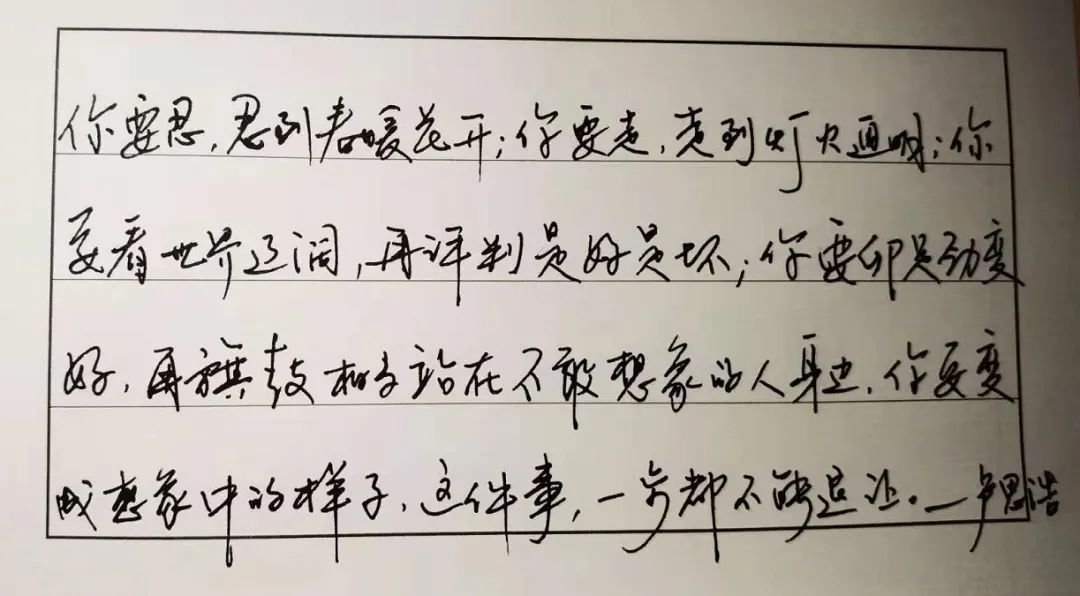 你要忍，忍到春暖花开；你要走，走到灯火通明；你
要看世界辽阔，再评判是好是坏；你要卯足劲变
好，再旗鼓相当站在不敢想象的人身边，你要变
成想象中的样子，这件事，一步都不能退让。—卢思浩